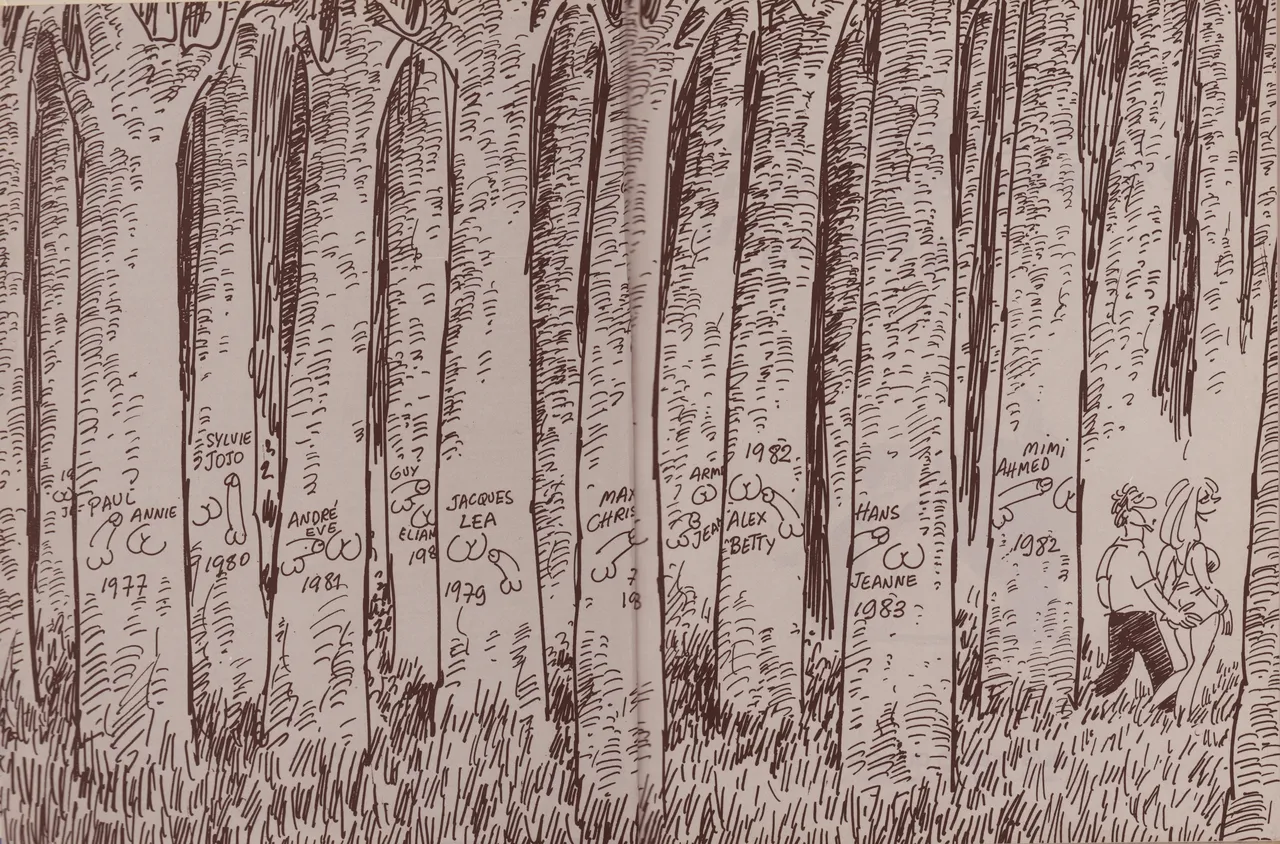 PAUL
ANNIE
1977
SYLVIE
JOJO
1980
ANDRÉ
EVE
1981
GUY
ELIAN
198
JACQUES
LEA
1979
MAX
CHRIS
ARM
JEAN
1982
ALEX
BETTY
HANS
JEANNE
1983
MIMI
AHMED
1982